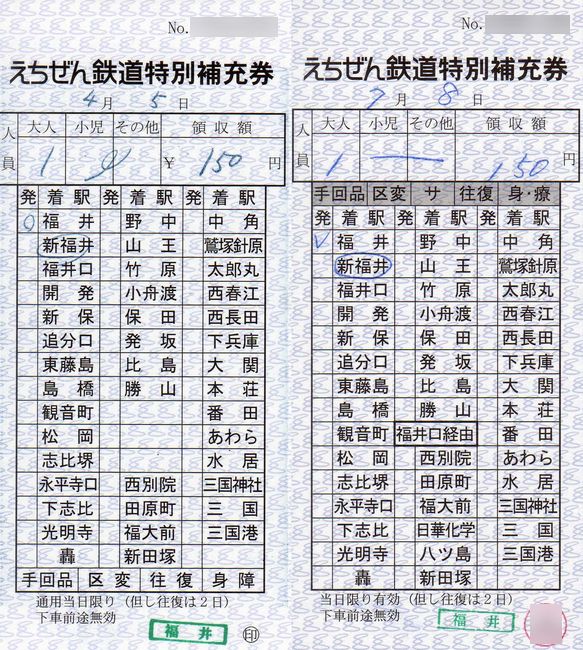 No.
えちぜん鉄道特別補充券
4月 5日
人員 大人 小児 その他 領収額
1 ¥150円
発 着駅 着駅 着駅
福井 野中 中角
新福井 山王 鷲塚針原
福井口 竹原 太郎丸
開発 小舟渡 西春江
新保 保田 西長田
追分口 発坂 下兵庫
東藤島 比島 大関
島橋 勝山 本荘
観音町 番田
松岡 あわら
志比堺 水居
永平寺口 西別院 三国神社
下志比 田原町 三国
光明寺 福大前 三国港
轟 新田塚
手回品 区変 往復 身障
通用当日限り(但し往復は2日)
下車前途無効
福井
印
No.
えちぜん鉄道特別補充券
7月 8日
人員 大人 小児 その他 領収額
1 150円
手回品 区変 サ 往復 身・療
発 着駅 着駅 着駅
福井 野中 中角
新福井 山王 鷲塚針原
福井口 竹原 太郎丸
開発 小舟渡 西春江
新保 保田 西長田
追分口 発坂 下兵庫
東藤島 比島 大関
島橋 勝山 本荘
観音町 福井口経由 番田
松岡 西別院 あわら
志比堺 田原町 水居
永平寺口 福大前 三国神社
下志比 日華化学 三国
光明寺 八ツ島 三国港
轟 新田塚
当日限り有効(但し往復は2日)
下車前途無効
福井